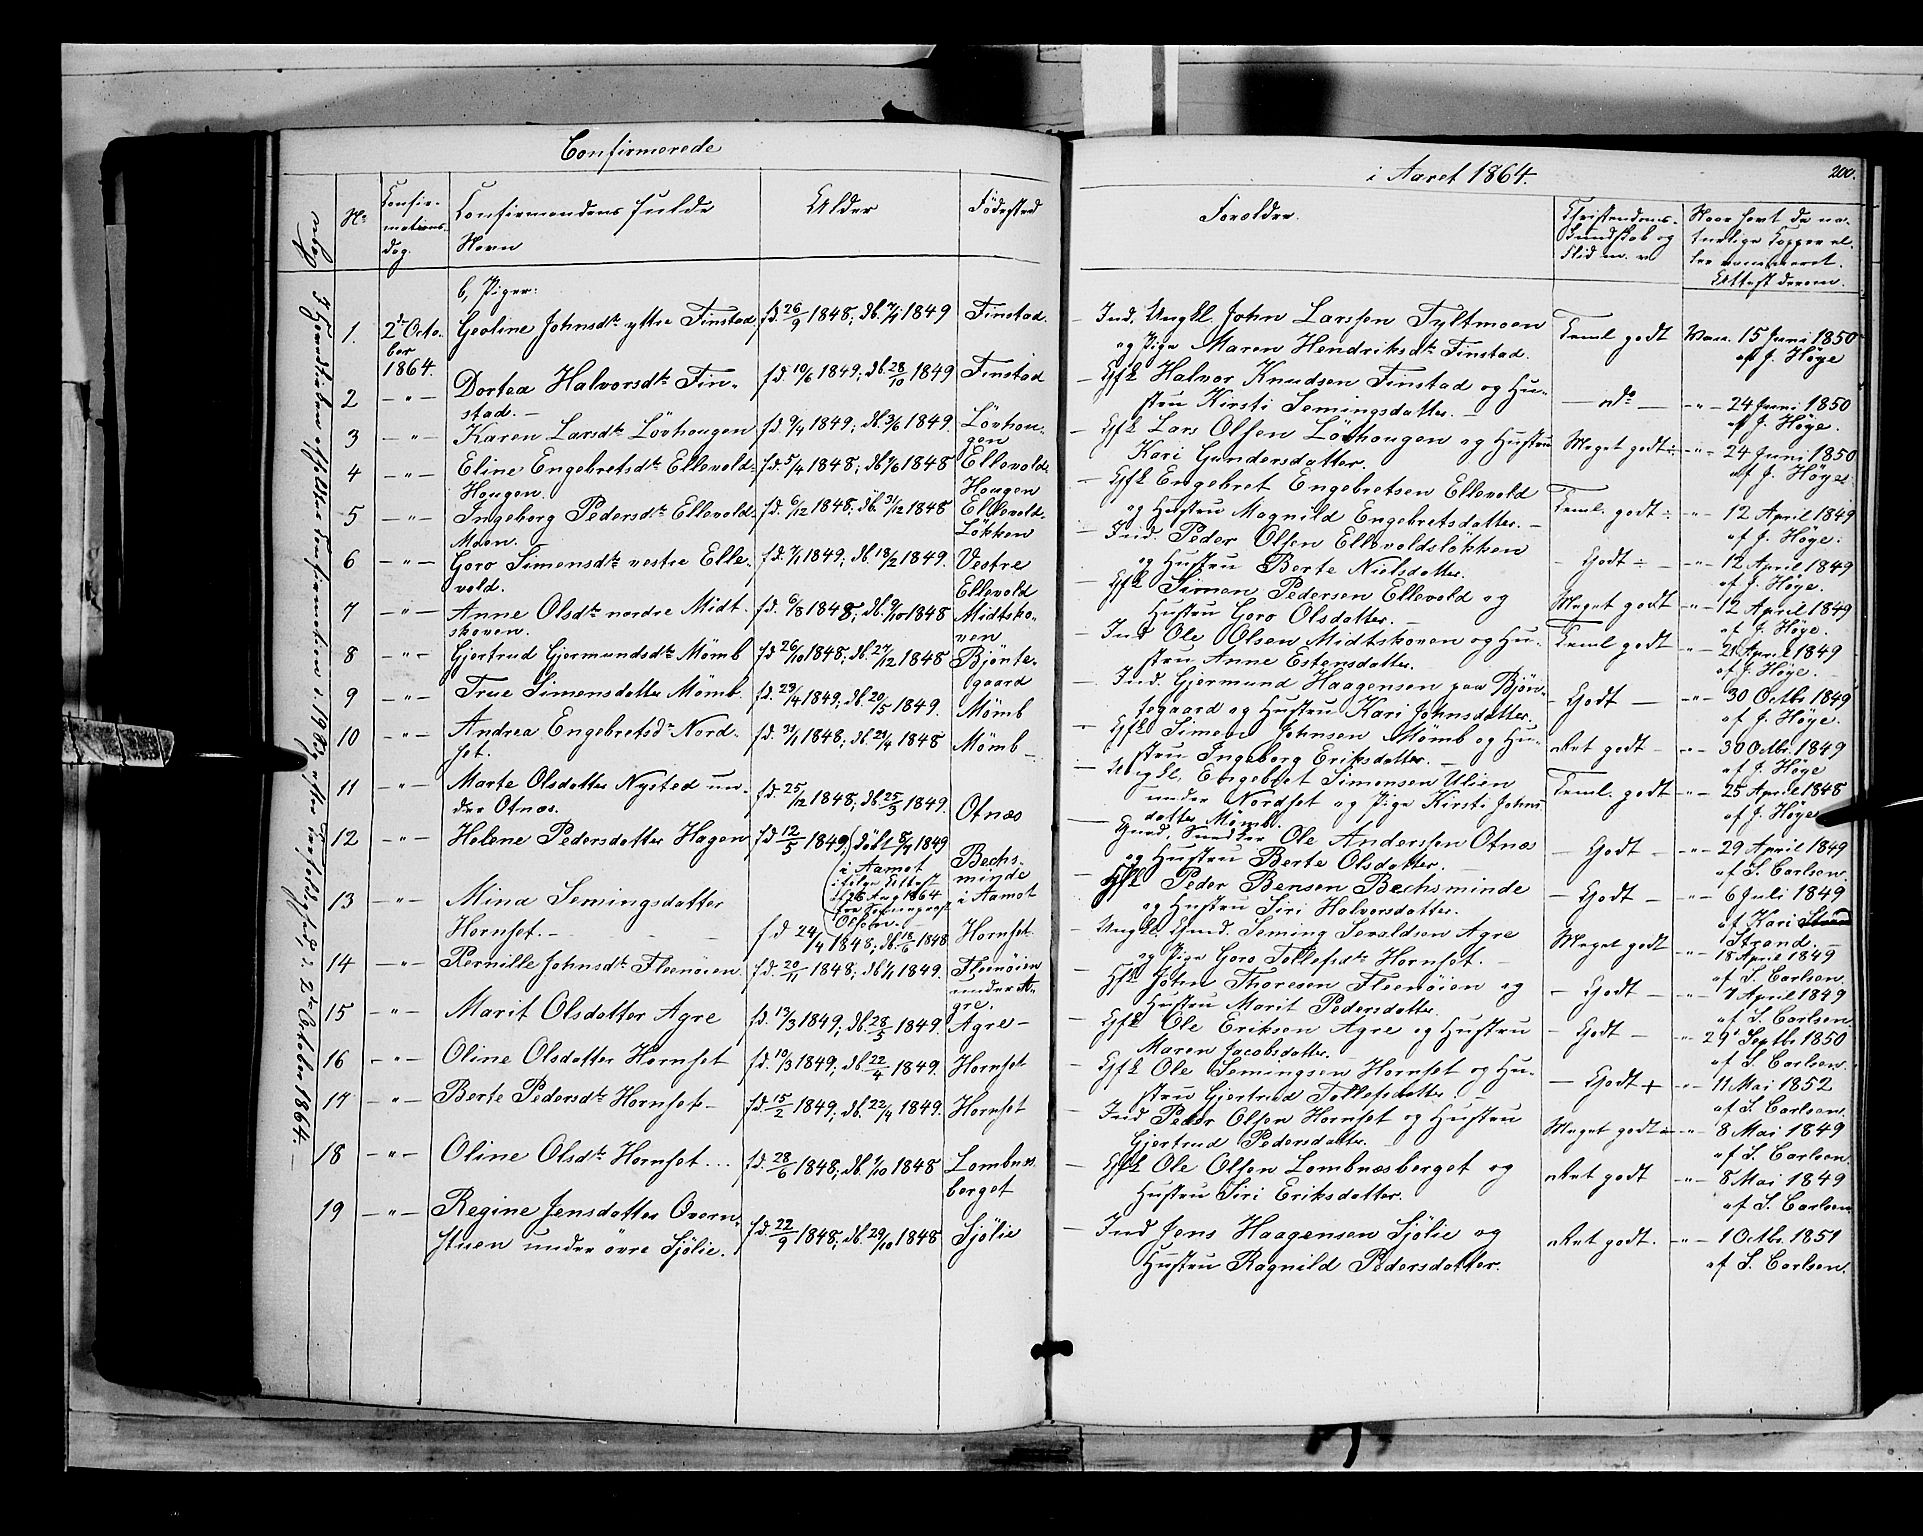 Confirmerede
i Aaret 1864.
200.
No
Confir-
mations
Dag.
Confirmandens fulde
Navn
Alder
Fødested
Forældre.
Christendoms-
Kundskab og
Flid m. v
Naar havt de na-
turlige Kopper el-
ler vaccineret.
Attest derom.
b, Piger:
1. 2den Octo-
ber
1864.
Geoline Johnsdtr yttre Finstad fd. 26/9 1848; db. 7/4 1849 Finstad.
Ind. Ungkl. John Larssen Tyltmoen
og Pige Maren Hendriksdtr Finstad.
Teml godt Vac. 15 Juni 1850
af J. Høye
2 —"— Dortea Halvorsdtr Fin-
stad. —
fd. 10/6 1849; db. 28/10 1849 Finstad
Gfk Halvor Knudsen Finstad og Hu-
stru Kirsti Semingsdatter. —
— do — —"— 24 Juni 1850
af J. Høye.
3 —"— Karen Larsdtr Løvhougen fd. 9/4 1849; db. 3/6 1849. Løvhou-
gen
Gfk Lars Olsen Løvhougen og Hustru
Kari Gundersdatter.
Meget godt ÷ —"— 24 Juni 1850
af J. Høye.
4 —"— Eline Engebretsdtr Ellevold-
Hougen.
fd. 5/4 1848; db. 9/6 1848 Ellevold-
Hougen
Gfk Engebret Engebretsen Ellevold
og Hustru Magnild Engebretsdatter. —
Teml. godt ÷ —"— 12 April 1849
af J. Høye.
5 —"— Ingeborg Pedersdtr Ellevold-
Moen. —
fd. 6/12 1848; db. 31/12 1848 Ellevold-
Løkken
Ind. Peder Olsen Ellevoldsløkken
og Hustru Berte Nielsdatter.
— Godt ÷ — —"— 12 April 1849
af J. Høye.
6 —"— Goro Simensdtr vestre Elle-
vold.
fd. 7/1 1849; db. 18/2 1849. Vestre
Ellevold
Gfk Simen Pedersen Ellevold og
Hustru Goro Olsdatter. —
Meget godt —"— 12 April 1849
af J. Høye.
7 —"— Anne Olsdtr nordre Midt-
skoven.
fd. 6/8 1848; db. 9/10 1848 Midtsko-
ven
Ind Ole Olsen Midtskoven og Hu-
stru Anne Estensdatter.
Teml godt —"— 21 April 1849
af J. Høye. —
8 —"— Gjertrud Gjermundsdtr Mømb fd 26/10 1848; db. 27/12 1848 Bjønte-
gaard
Ind. Gjermund Haagensen paa Bjøn-
tegaard og Hustru Kari Johnsdatter.
— Godt — —"— 30 Octbr 1849
af J. Høye.
9 —"— Simensdatter Mømb. fd. 29/4 1849; db. 20/5 1849. Mømb
Gfk Simen Johnsen Mømb og Hu-
stru Ingeborg Eriksdatter. —
Ret godt — —"— 30 Octbr. 1849
af J. Høye
10 —"— Andrea Engebretsdr Nord-
set.
fd. 31/1 1848; db. 24/4 1848 Mømb —
Ungkl. Engebret Simensen Ulien
under Nordset og Pige Kirsti Johns
datter Mømb.
Teml. godt —"— 25 April 1848
af J. Høye
11 —"— Marte Olsdatter Nysted un-
der Otnæs.
fd. 25/12 1848; db. 25/3 1849. Otnæs
Ole Anderssen Otnæs
og Hustru Berte Olsdatter.
— Godt — —"— 29 April 1849
af S. Carlsen.
12 —"— Helene Pedersdatter Hagen fd 12/5 1849; (døbt 8/7 1849
i Aamot
ifølge Attest
af 26 Aug 1864
fra Sognepræst
Olsen.)
Bechs-
minde
i Aamot
Gfk Peder Bensen Bechsminde
og Hustru Siri Halvorsdatter.
— Godt — —"— 6 Juli 1849
af Kari
Strand. —
13 —"— Mina Semingsdatter
Hornset. —
fd 24/4 1848; db. 18/6 1848 Hornset
Ungkl. Gmd. Seming Agre
og Pige Goro Tollefsdtr Hornset. —
Meget godt —"— 18 April 1849
af S. Carlsen.
14 —"— Pernille Johnsdtr Fleenøien fd. 20/11 1848; db. 1/1 1849. Fleenøien
under A-
gre.
Gfk John Thoresen Fleenøien og
Hustru Marit Pedersdatter
— Godt — —"— 7 April 1849
af S. Carlsen.
15 —"— Marit Olsdatter Agre fd. 17/3 1849; db. 28/5 1849. Agre —
Gfk Ole Eriksen Agre og Hustru
Maren Jacobsdatter. —
— Godt — —"— 29 Septbr 1850
af S. Carlsen
16 —"— Oline Olsdatter Hornset fd. 10/3 1849; db 22/4 1849. Hornset
Gfk Ole Semingsen Hornset og Hu-
stru Gjertrud Tollefsdatter
— Godt + —"— 11 Mai 1852
af S. Carlsen.
17 —"— Berte Pedersdtr Hornset — fd. 15/2 1849; db. 22/4 1849. Hornset
Ind Peder Olsen Hornset og Hustru
Gjertrud Pedersdatter.
Meget godt ÷ —"— 8 Mai 1849
af S. Carlsen.
18 —"— Oline Olsdtr Hornset ... fd. 28/6 1848; db. 1/10 1848 Lombnæs
berget
Gfk Ole Olsen Lombnæsberget og
Hustru Siri Eriksdatter.
Ret godt —"— 8 Mai 1849
af S. Carlsen.
19 —"— Regine Jensdatter Overn-
stuen under övre Sjölie.
fd. 22/9 1848; db. 29/10 1848 Sjölie
Ind Jens Haagensen Sjölie og
Hustru Ragnild Pedersdatter.
Ret godt. —"— 1 Octbr. 1851
af S. Carlsen.
2den October 1864. —